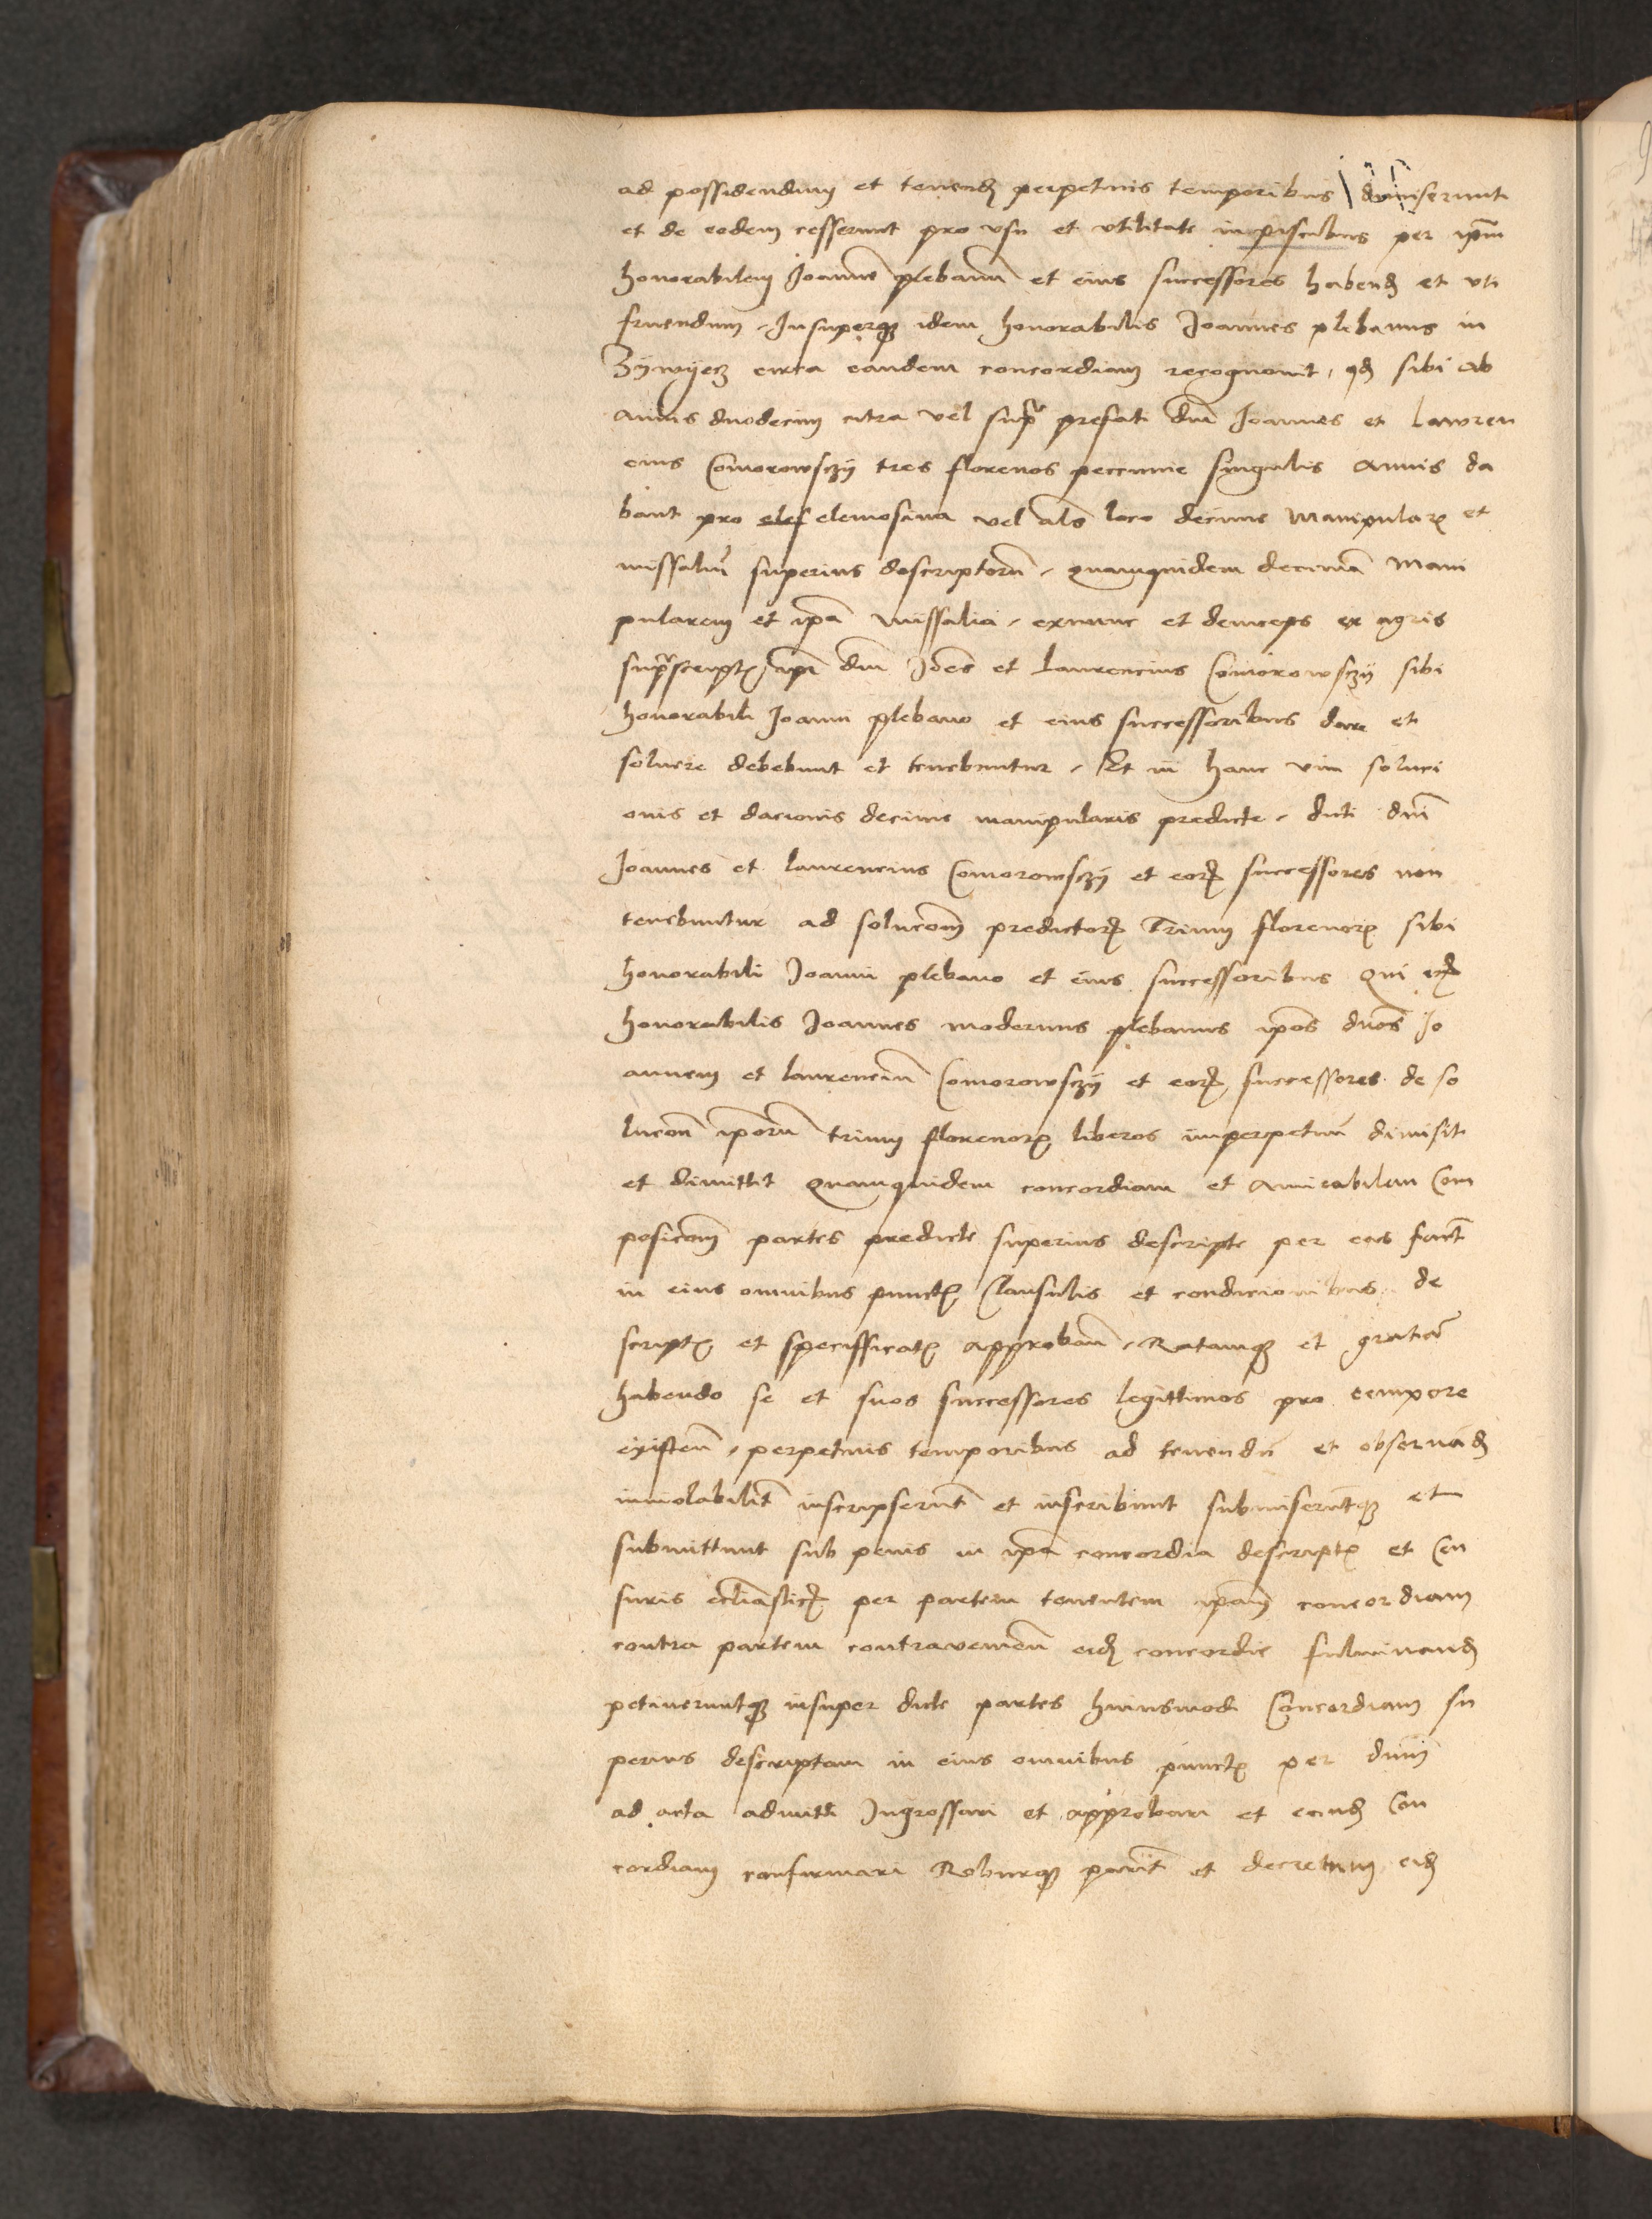 ad possidendum et tenend perpetuis temporibus dimiserunt
et de eodem cesserunt pro vsu et vtilitate in piscibus per ipm
honorabilem Joanne plebanu et eius successores habend et vti
fruendum Insuperq idem honorabilis Joannes plebanus in
Zywyecz circa eandem concordiam recognouit qd sibi ab
annis duodecim citra vel supra prefati dni Joannes et Lawren
cius Comorowsczy tres florenos peccunie singulis annis da
bant pro elemosina vel als loco decime manipular et
missaliu superius descriptoru quamquidem decima mani
pularem et ipa missalia exnunc et deinceps ex agris
suprascript ipi dni Joes et Laurencius Comorowsczy sibi
honorabili Joanni plebano et eius successoribus dare et
soluere debebunt et tenebuntur Et in hanc vim soluci
onis et dacionis decime manipularis predicte dicti dni
Joannes et Laurencius Comorowsczy et eor successores non
tenebuntur ad solucom predictor Trium florenor sibi
honorabili Joanni plebano et eius successoribus Qui
honorabilis Joannes modernus plebanus ipos dnos Jo
annem et Laurenciu Comorowsczy et eor successores de so
lucom iporu trium florenor liberos imperpetuu dimisit
et dimittit Quamquidem concordiam et amicabilem Com
posicom partes predicte superius descripte per eas fact
in eius omnibus punct Clausulis et condicionibus de
script et specifficat approban Ratamq et grata
habendo se et suos successores legittimos pro tempore
existen perpetuis temporibus ad tenendu et obseruand
inuiolabilit inscripserunt et inscribunt submiseruntq et
submittunt sub penis in ipa concordia descript et Cen
suris eccliastic per partem tenentem ipam concordiam
contra partem contravenien eid concordie fulminand
petiueruntq insuper dicte partes huiusmodi Concordiam su
perius descriptam in eius omnibus punct per dnu
ad acta admitti Ingrossari et approbari et eand Con
cordiam confirmari Roburq parit et decretum eid